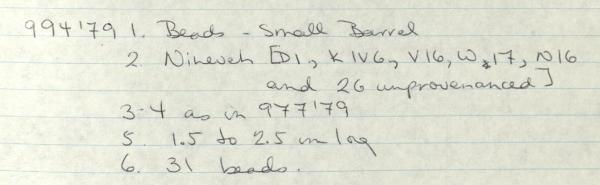 994'79 1. Beads - Small Barrel
2. Nineveh [D1, K1V6, V16, W17, N16
and 26 unprovenanced]
3-4 as in 977'79
5. 1.5 to 2.5 cm long
6. 31 beads.